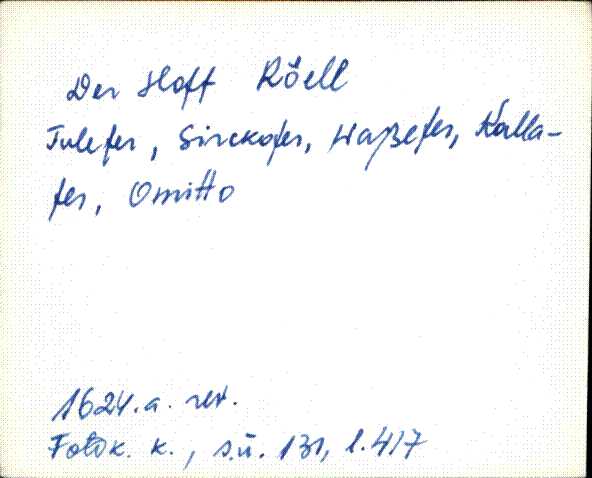 Der Hoff Röell
Tulefer, Sirckofer, Haßefer, Kalla-
fer, Omitto
1624.a. rev.
Fotok. k., s.ü. 131, l.417